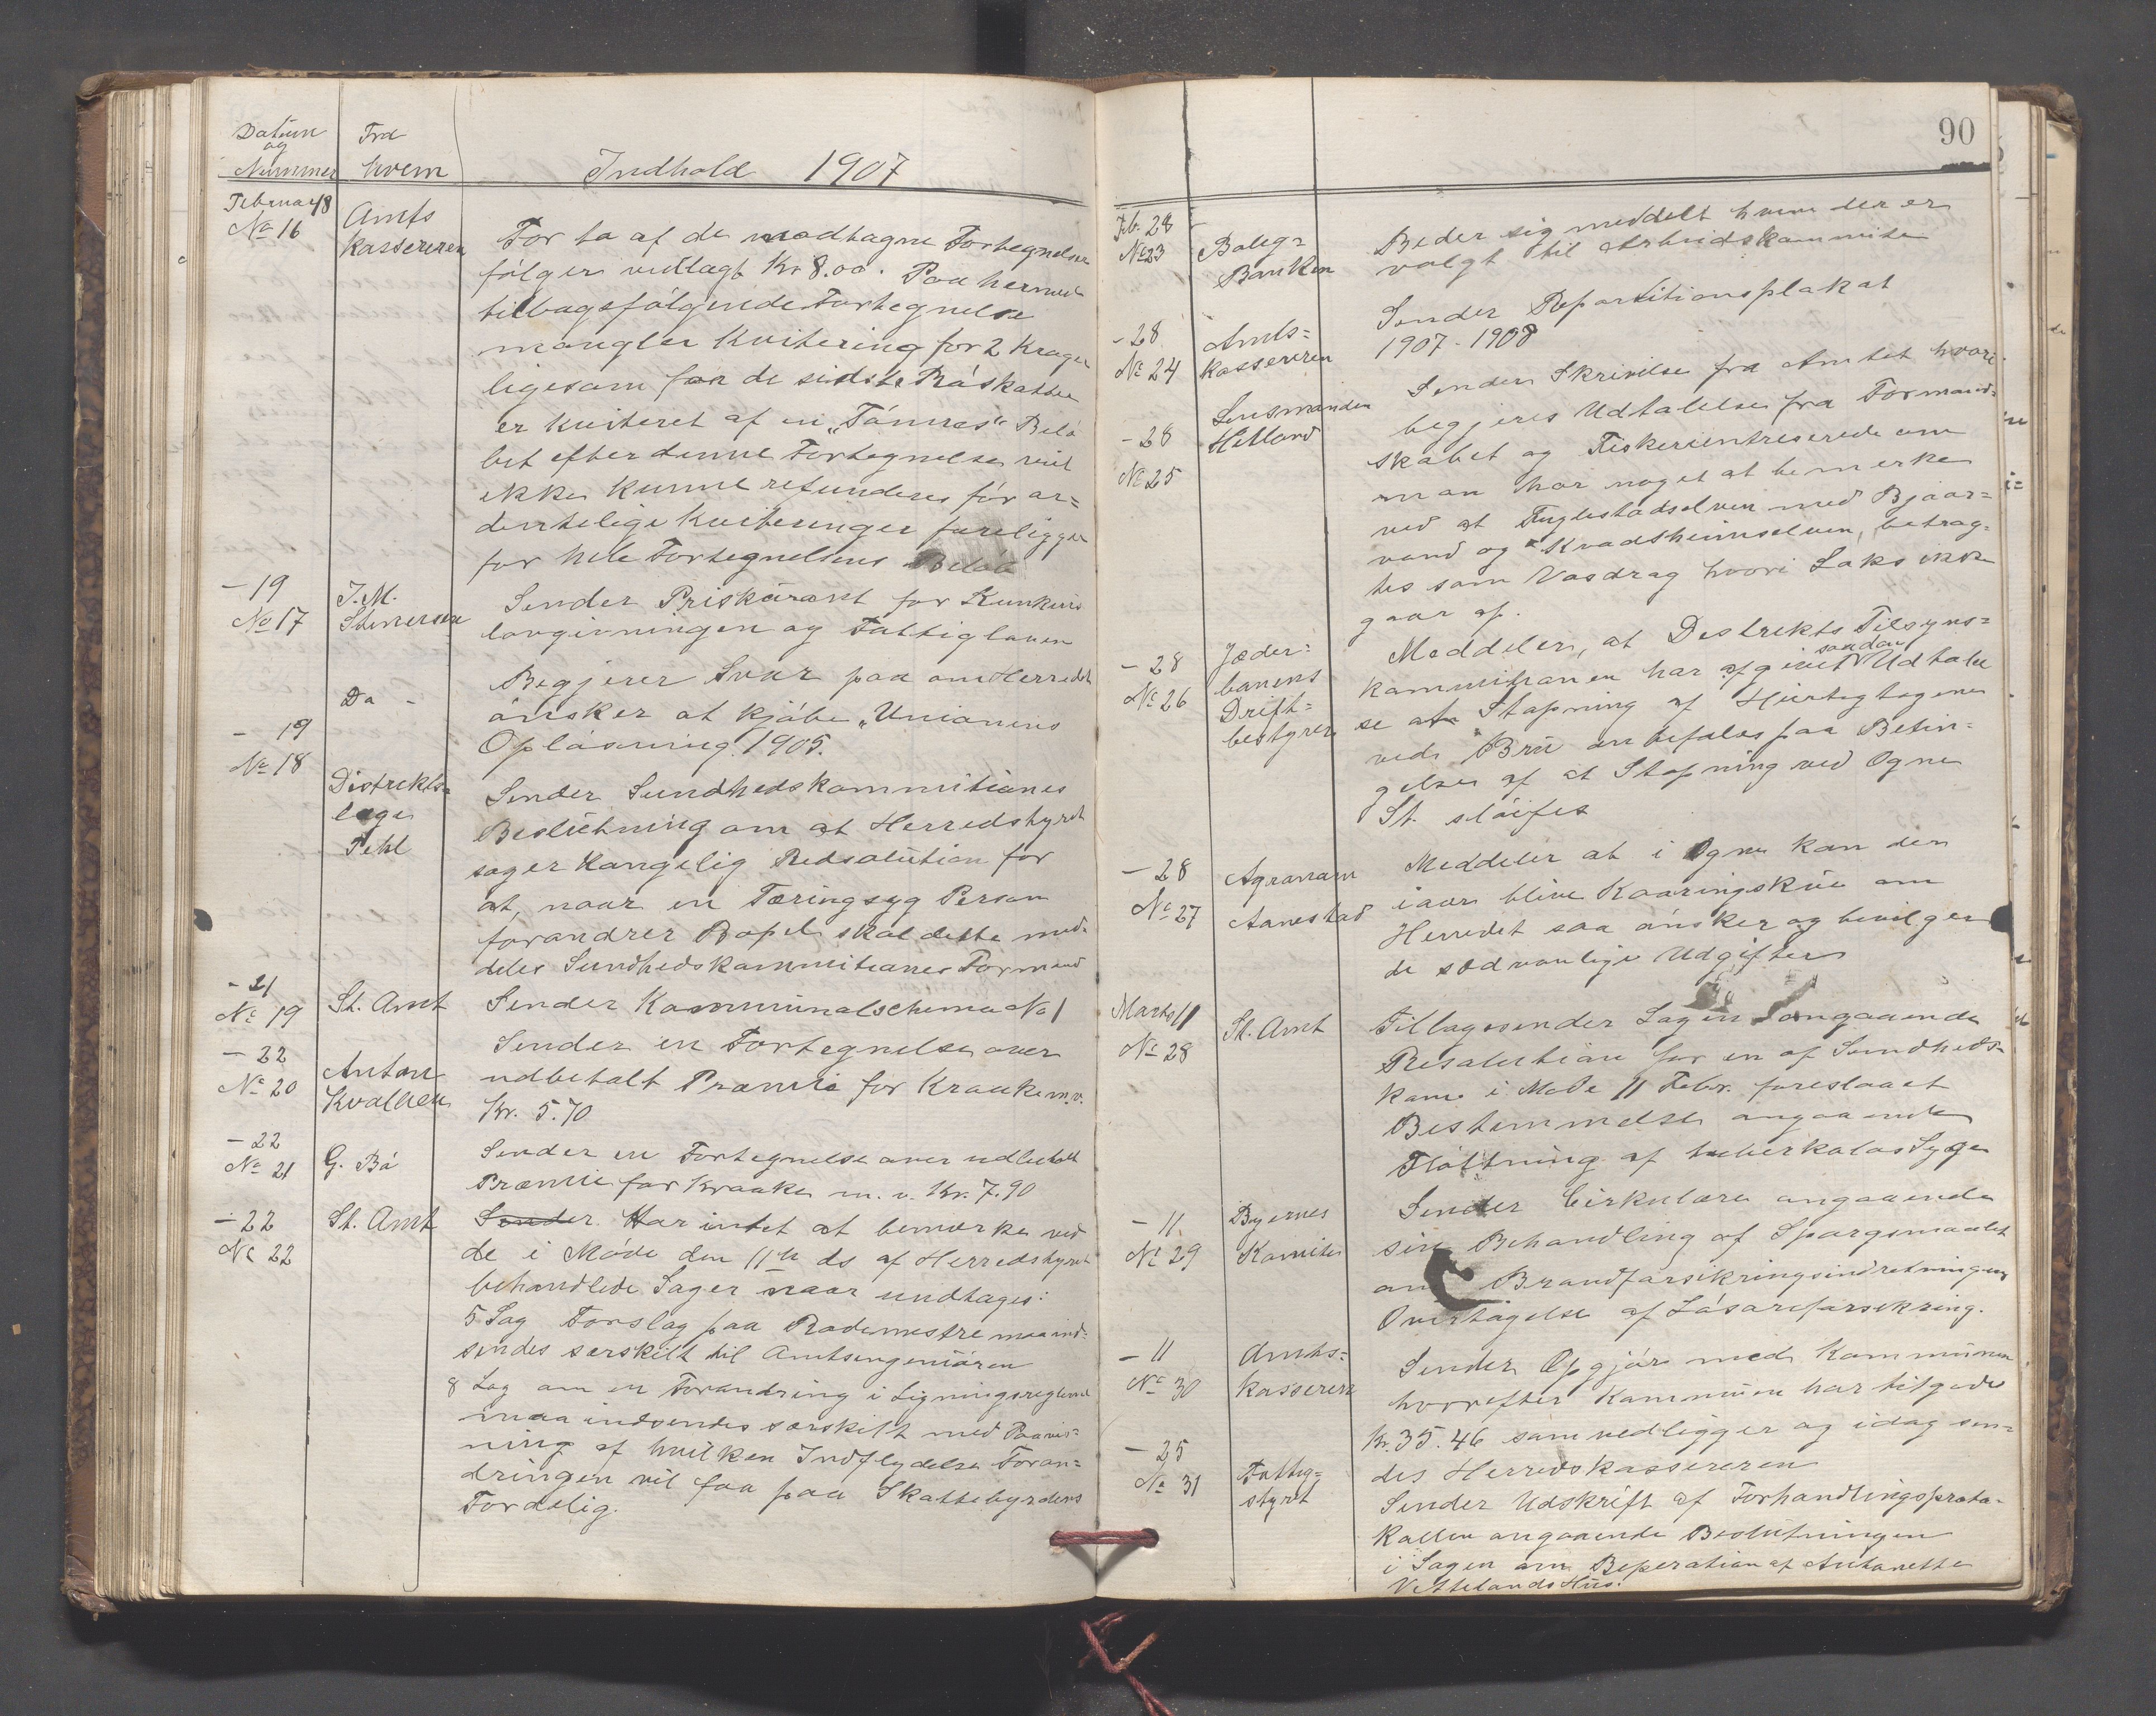 Datum
og
Nummer
Fra
hvem
Indhold 1907
Februar 18
No 16
Amts
kassereren
For to af de modtagne Fortegnelser
følger vedlagt Kr 8.00. Paa hermed
tilbagefølgende Fortegnelse
mangler Kvitering for 2 Krager
ligesom for de sidste Råskatter
er kviteret af en „Tånnes“ Belø
bet efter denne Fortegnelse vil
ikke kunne refunderes før or=
dentelige Kviteringer foreligger
for hele Fortegnelsens Beløb
- 19
No 17
J. M.
Stenersen
Sender Priskurant for Konkurs
lovgivningen og Fattigloven
- 19
No 18
Do -
Begjerer Svar paa om Herredet
ønsker at kjøbe „Unionens
Opløsning 1905.
Distrikts=
læge
Fehl
Sender Sundhedskommitiones
Beslutning om at Herredstyret
søger Kongelig Redsolution for
at, naar en Tæringsyg Person
forandrer Bopel skal dette med-
deles Sundhedskommitiones Formand
- 21
No 19
St. Amt
Sender Kommunalschema No 1
- 22
No 20
Anton
Kvalheim
Sender en Fortegnelse over
udbetalt Præmie for Kraake m.v.
Kr. 5.70
- 22
No 21
G. Bø
Sender en Fortegnelse over udbetalt
Præmie for Kraake m. v. Kr. 7.90
- 22
No 22
St. Amt
Sender Har intet at bemærke ved
de i Møde den 11te ds af Herredstyret
behandlede Sager naar undtages:
5 Sag Forslag paa Rodemestre maa ind=
sendes særskilt til Amtsingeniøren
8 Sag om en Forandring i Ligningsreglement
maa indsendes særskilt med Paavis=
ning af hvilken Indflydelse Foran=
dringen vil faa paa Skattebyrdens
Fordelig.
90
Feb. 28
No 23
Bolig=
Banken
Beder sig meddelt hvem der er
valgt til Arbeidskommite
- 28
No 24
Amts=
kassereren
Sender Repartitionsplakat
1907 - 1908
- 28
No 25
Lensmanden
Hetland
Sender Skrivelse fra Amtet hvori
begjeres Udtalelse fra Formand=
skabet og Fiskeriintreserede om
man har noget at bemerke
ved at Fuglestadselven med Bjaar=
vand og Kvadsheimselven, betrag=
tes som Vasdrag hvori Laks ikke
gaar op.
- 28
No 26
Jæder=
banens
Drift=
bestyrer
Meddeler, at Destrekts Tilsyns=
kommitionen har afgivet saadan Udtalel
se at Stopning af Hurtigtogene
ved Bru anbefales paa Betin=
gelse af at Stopning ved Ogne
St. sløifes
- 28
No 27
Agronom
Aanestad
Meddeler at i Ogne kan der
iaar blive Kaaringskue om
Herredet saa ønsker og bevilger
de sædvanlige Udgifter
Marts 11
No 28
St. Amt
Tilbagesender Sagen angaaende
Resolution for en af Sundheds-
kom. i Møde 11 Febr. foreslaaet
Bestemmelse angaaende
Fløttning af tuberkolos Syge
- 11
No 29
Byernes
Komite
Sender Cirkulære angaaende
sin Behandling af Spørgsmaalet
om Brandforsikringsindretningens
Overtagelse af Løsøreforsekring.
- 11
No 30
Amts=
kasserer
Sender Opgjør med Kommunen
hvorefter Kommunen har tilgode
Kr. 35.46 som vedligger og idag sen=
des Herredskassereren
- 25
No 31
Fattig=
styret
Sender Udskrift af Forhandlingsproto-
kollen angaaende Beslutningen
i Sagen om Reperation af Antonette
Vetteland's Hus.